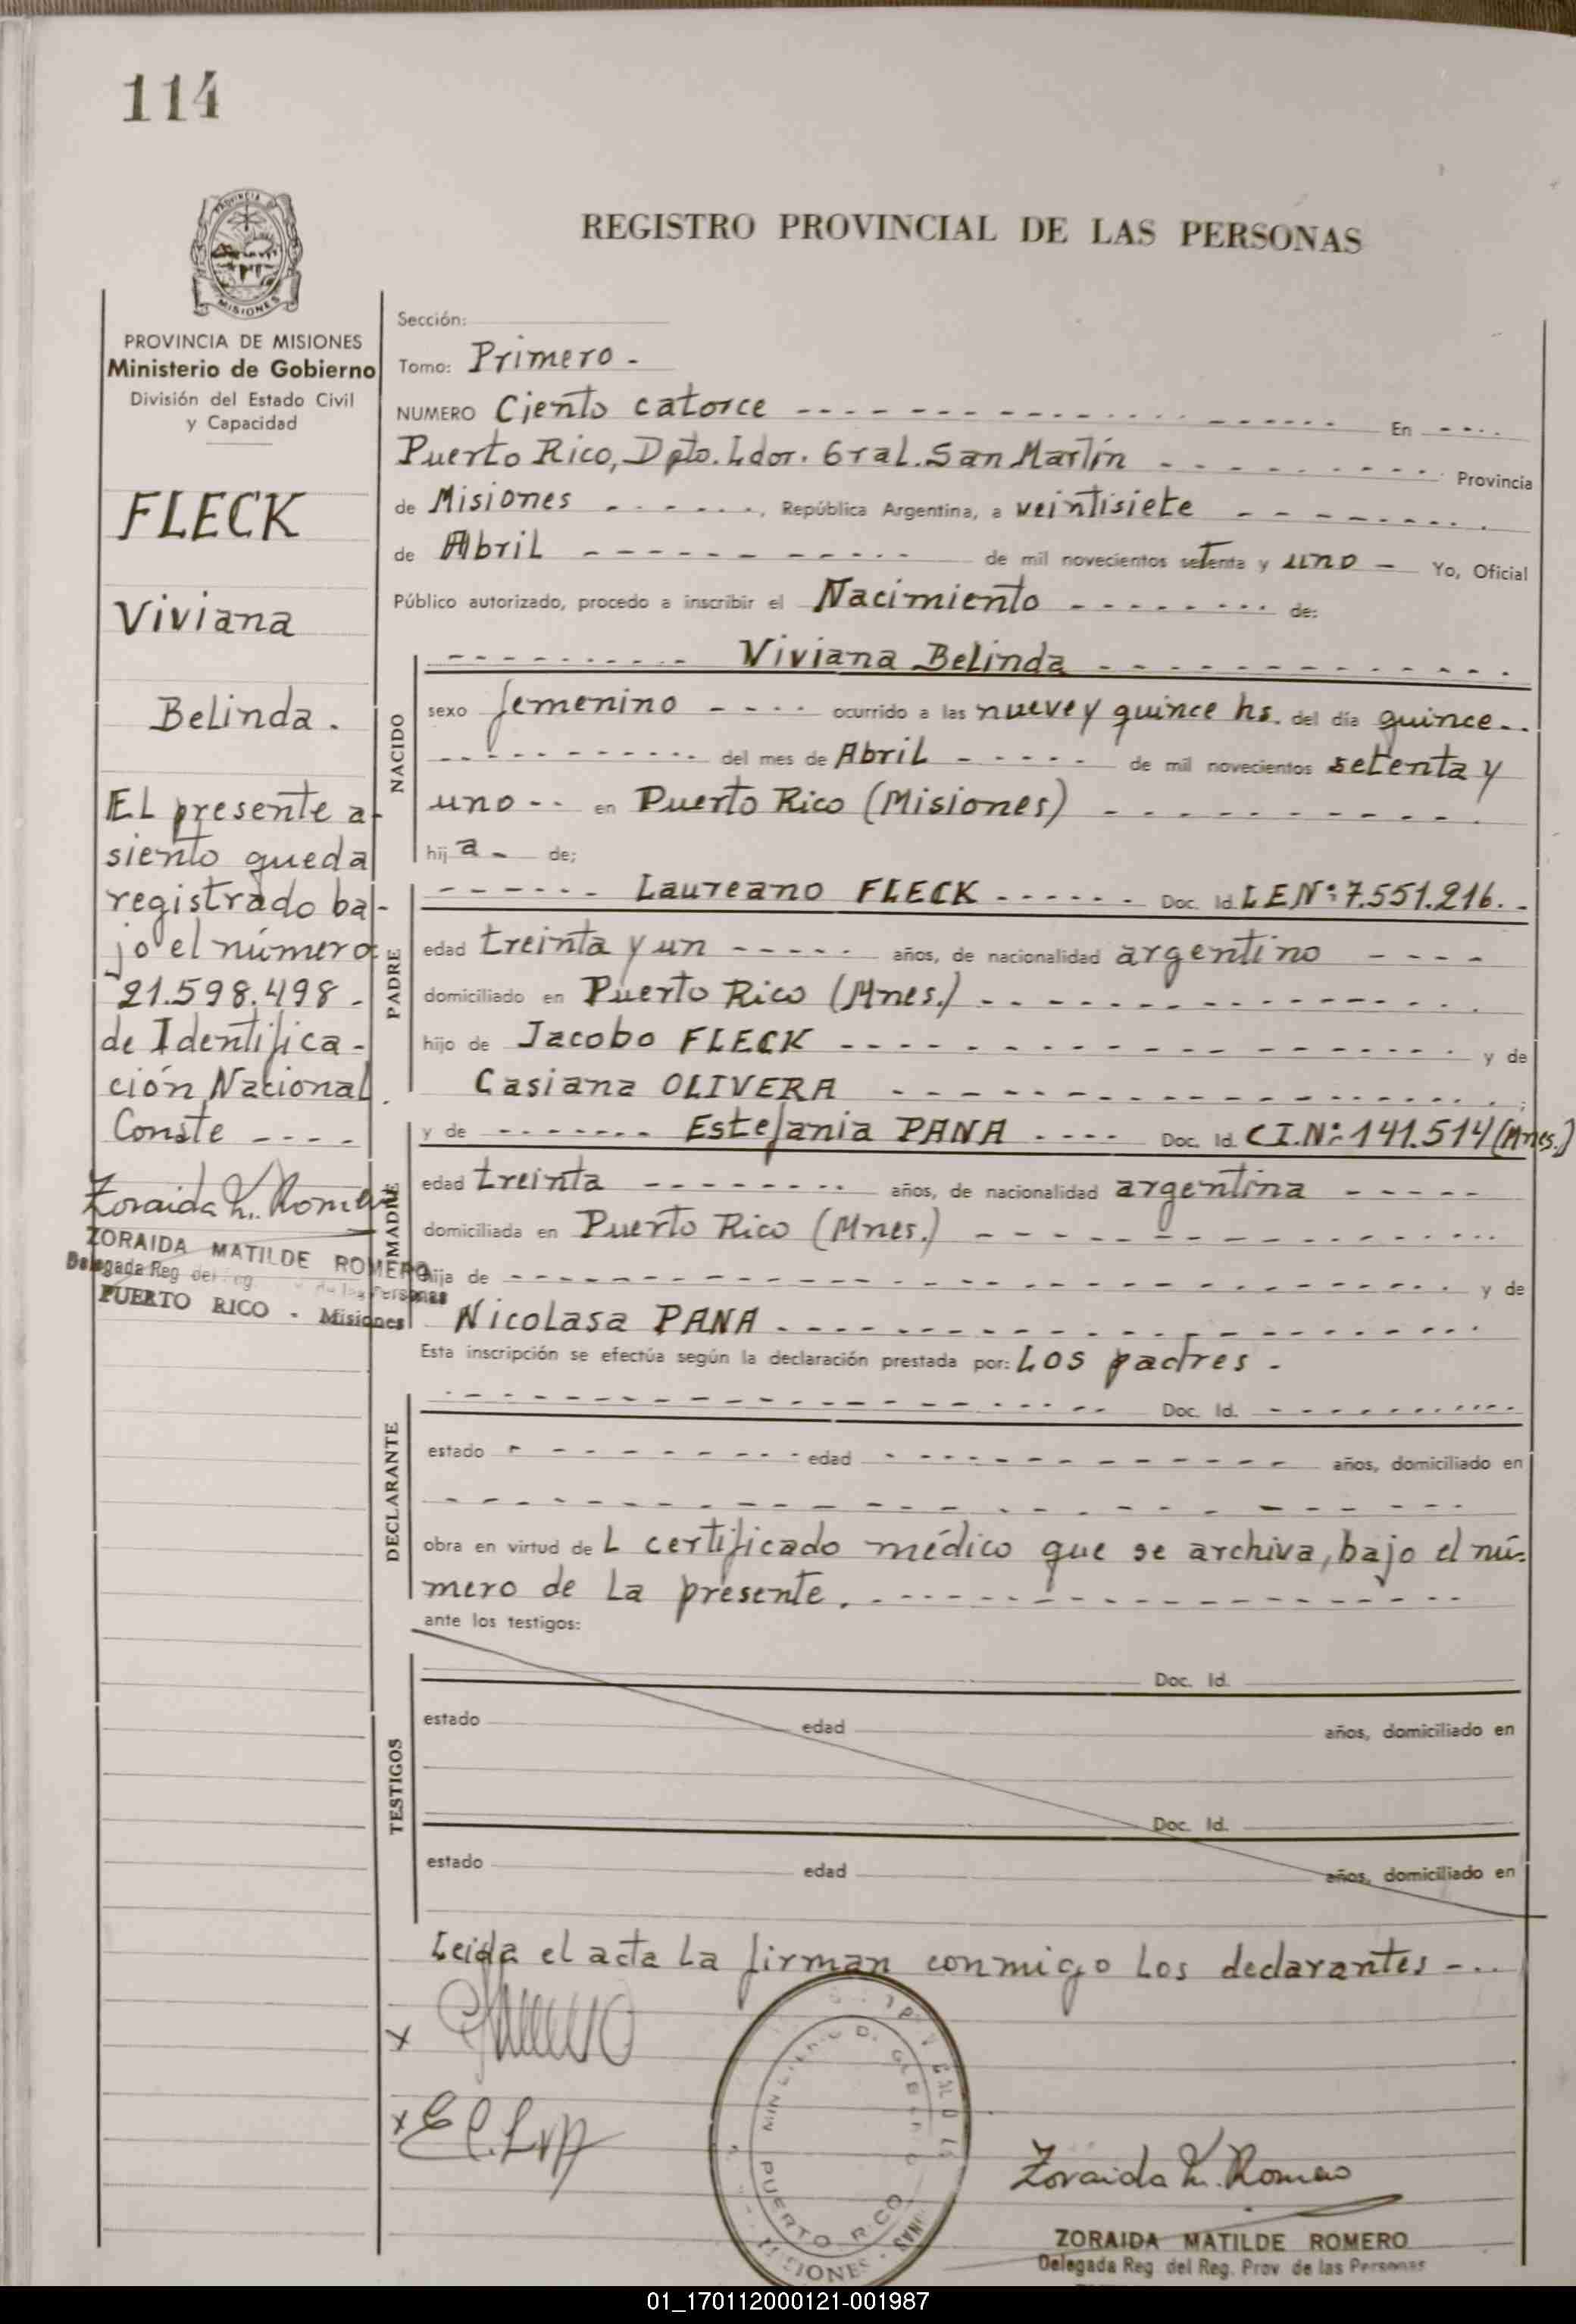 114
PROVINCIA DE
MISIONES
REGISTRO PROVINCIAL DE LAS PERSONAS
PROVINCIA DE MISIONES
Ministerio de Gobierno
División del Estado Civil
y Capacidad
FLECK
Viviana
Belinda.
El presente a-
siento queda
registrado ba-
jo el número
21.598.498.
de Identifica-
ción Nacional.
Conste ----
Zoraida M. Romero
ZORAIDA MATILDE ROMERO
Delegada Reg del Reg. de las Personas
PUERTO RICO - Misiones
Sección:
Tomo: Primero -
NUMERO Ciento catorce ---- En ----
Puerto Rico, Dpto. Ldor. Gral. San Martín ---- Provincia
de Misiones ----, República Argentina, a veintisiete ----
de Abril ---- de mil novecientos setenta y uno - Yo, Oficial
Público autorizado, procedo a inscribir el Nacimiento ---- de:
NACIDO
---- Viviana Belinda ----
sexo femenino ---- ocurrido a las nueve y quince hs. del día quince --
---- del mes de Abril ---- de mil novecientos setenta y
uno -- en Puerto Rico (Misiones) ----
hij a - de;
PADRE
---- Laureano FLECK ---- Doc. Id. L E Nº: 7.551.216. -
edad treinta y un ---- años, de nacionalidad argentino ----
domiciliado en Puerto Rico (Mnes.) ----
hijo de Jacobo FLECK ---- y de
Casiana OLIVERA ---- ;
MADRE
y de ---- Estefania PANA ---- Doc. Id. C I. Nº: 141.514 (Mnes.)
edad treinta ---- años, de nacionalidad argentina ----
domiciliada en Puerto Rico (Mnes.) ----
hija de ---- y de
Nicolasa PANA ----
Esta inscripción se efectúa según la declaración prestada por: Los padres -
DECLARANTE
---- Doc. Id. ----
estado ---- edad ---- años, domiciliado en
----
obra en virtud de L certificado médico que se archiva, bajo el nú-
mero de La presente. ----
ante los testigos:
TESTIGOS
Doc. Id.
estado edad años, domiciliado en
Doc. Id.
estado edad años, domiciliado en
Leida el acta La firman conmigo Los declarantes ----
x
x
PUERTO RICO
MISIONES
Zoraida M. Romero
ZORAIDA MATILDE ROMERO
Delegada Reg del Reg. Prov de las Personas
01_170112000121-001987